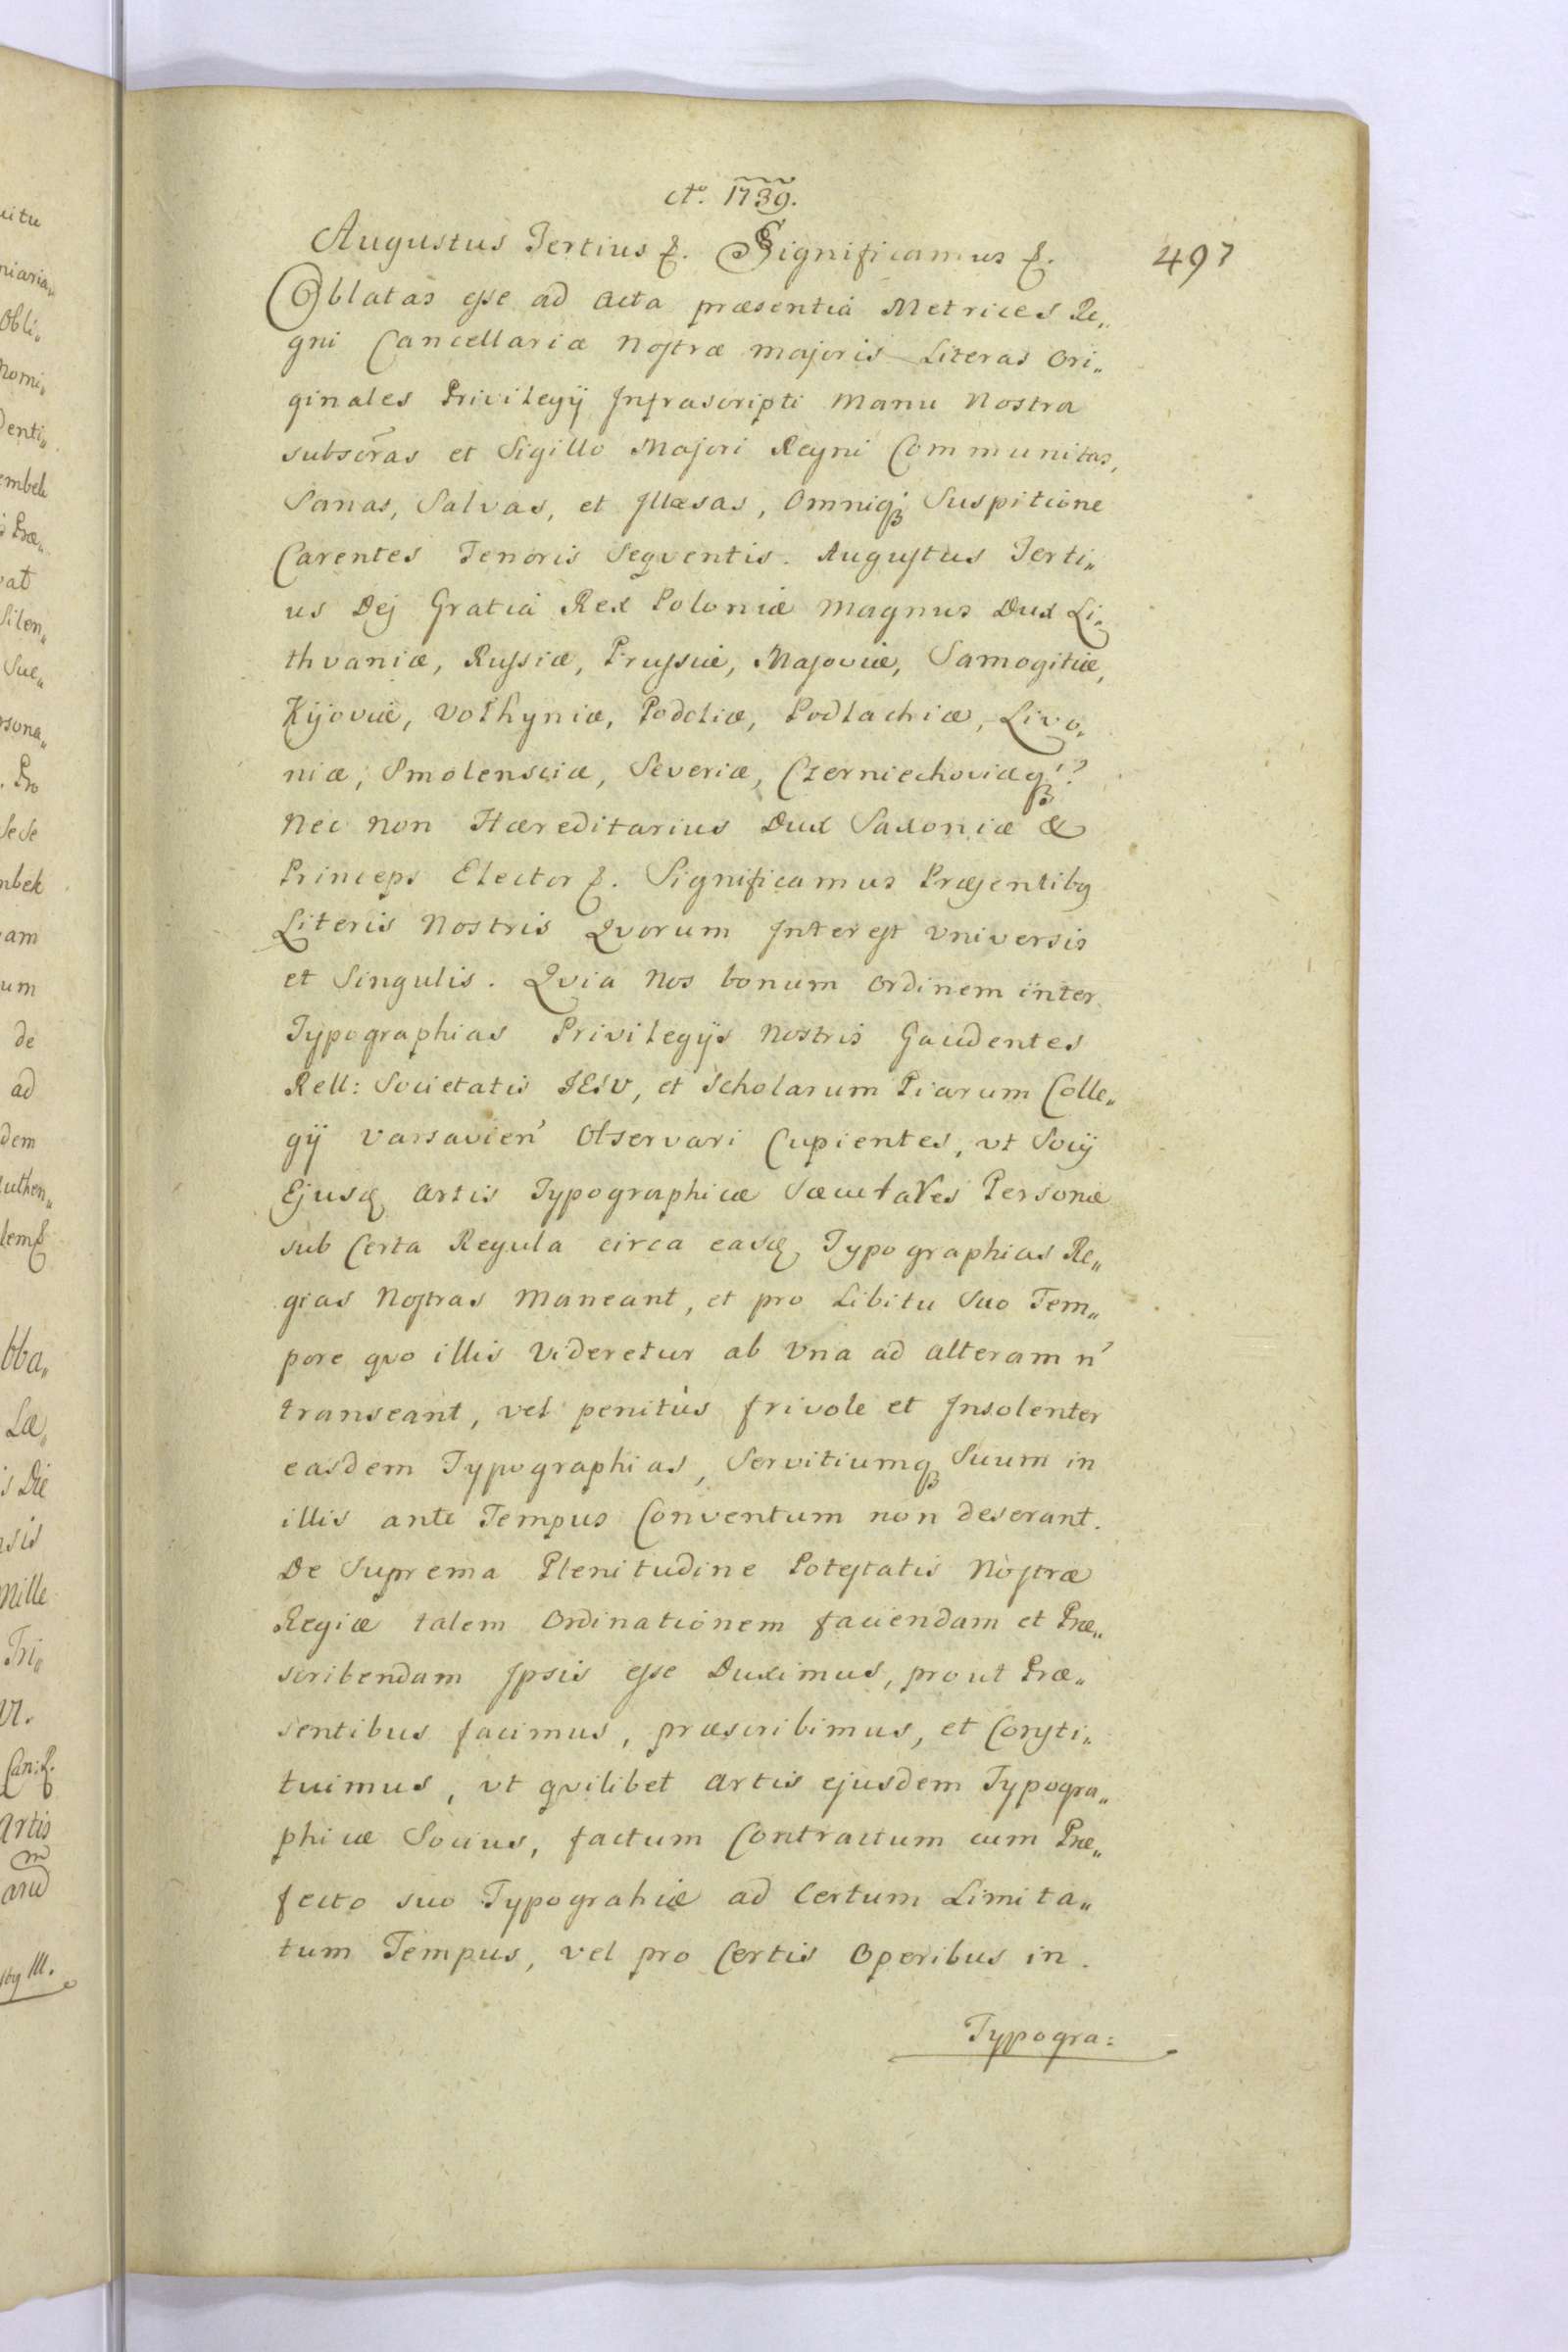 Aō. 1739.
497
Augustus Tertius &. Significamus &.
Oblatas esse ad Acta præsentia Metrices Re„
gni Cancellariæ Nostræ Majoris Literas Ori„
ginales Privilegÿ Infrascripti Manu Nostra
subscr̄as et Sigillo Majori Regni Communitas,
Sanas, Salvas, et Illæsas, Omniq; Suspitione
Carentes Tenoris Seqventis. Augustus Terti„
us Dej Gratiâ Rex Poloniæ Magnus Dux Li„
thvaniæ, Russiæ, Prussiæ, Masoviæ, Samogitiæ,
Kijoviæ, Volhyniæ, Podoliæ, Podlachiæ, Livo„
niæ, Smolensciæ, Severiæ, Czerniechoviæq;
Nec non Hæreditarius Dux Saxoniæ &
Princeps Elector &. Significamus Præsentibg
Literis Nostris Qvorum Interest Vniversis
et Singulis. Qvia Nos bonum Ordinem inter
Typographias Privilegÿs Nostris Gaudentes
Rell: Societatis IESV, et Scholarum Piarum Colle„
gÿ Varsavien' Observari Cupientes, vt Socÿ
Ejusd Artis Typographicæ Sæculares Personæ
sub Certa Regula circa easd Typographias Re„
gias Nostras Maneant, et pro Libitu Suo Tem„
pore qvo illis Videretur ab Vna ad alteram n'
transeant, vel penitùs frivole et Insolenter
easdem Typographias, Servitiumq; Suum in
illis ante Tempus Conventum non deserant.
De Suprema Plenitudine Potestatis Nostræ
Regiæ talem Ordinationem faciendam et Præ„
scribendam Ipsis esse Duximus, prout Præ„
sentibus facimus, præscribimus, et Consti„
tuimus, vt qvilibet Artis ejusdem Typogra„
phicæ Socius, factum Contractum cum Præ„
fecto suo Typograhiæ ad Certum Limita„
tum Tempus, vel pro Certis Operibus in
Typogra: